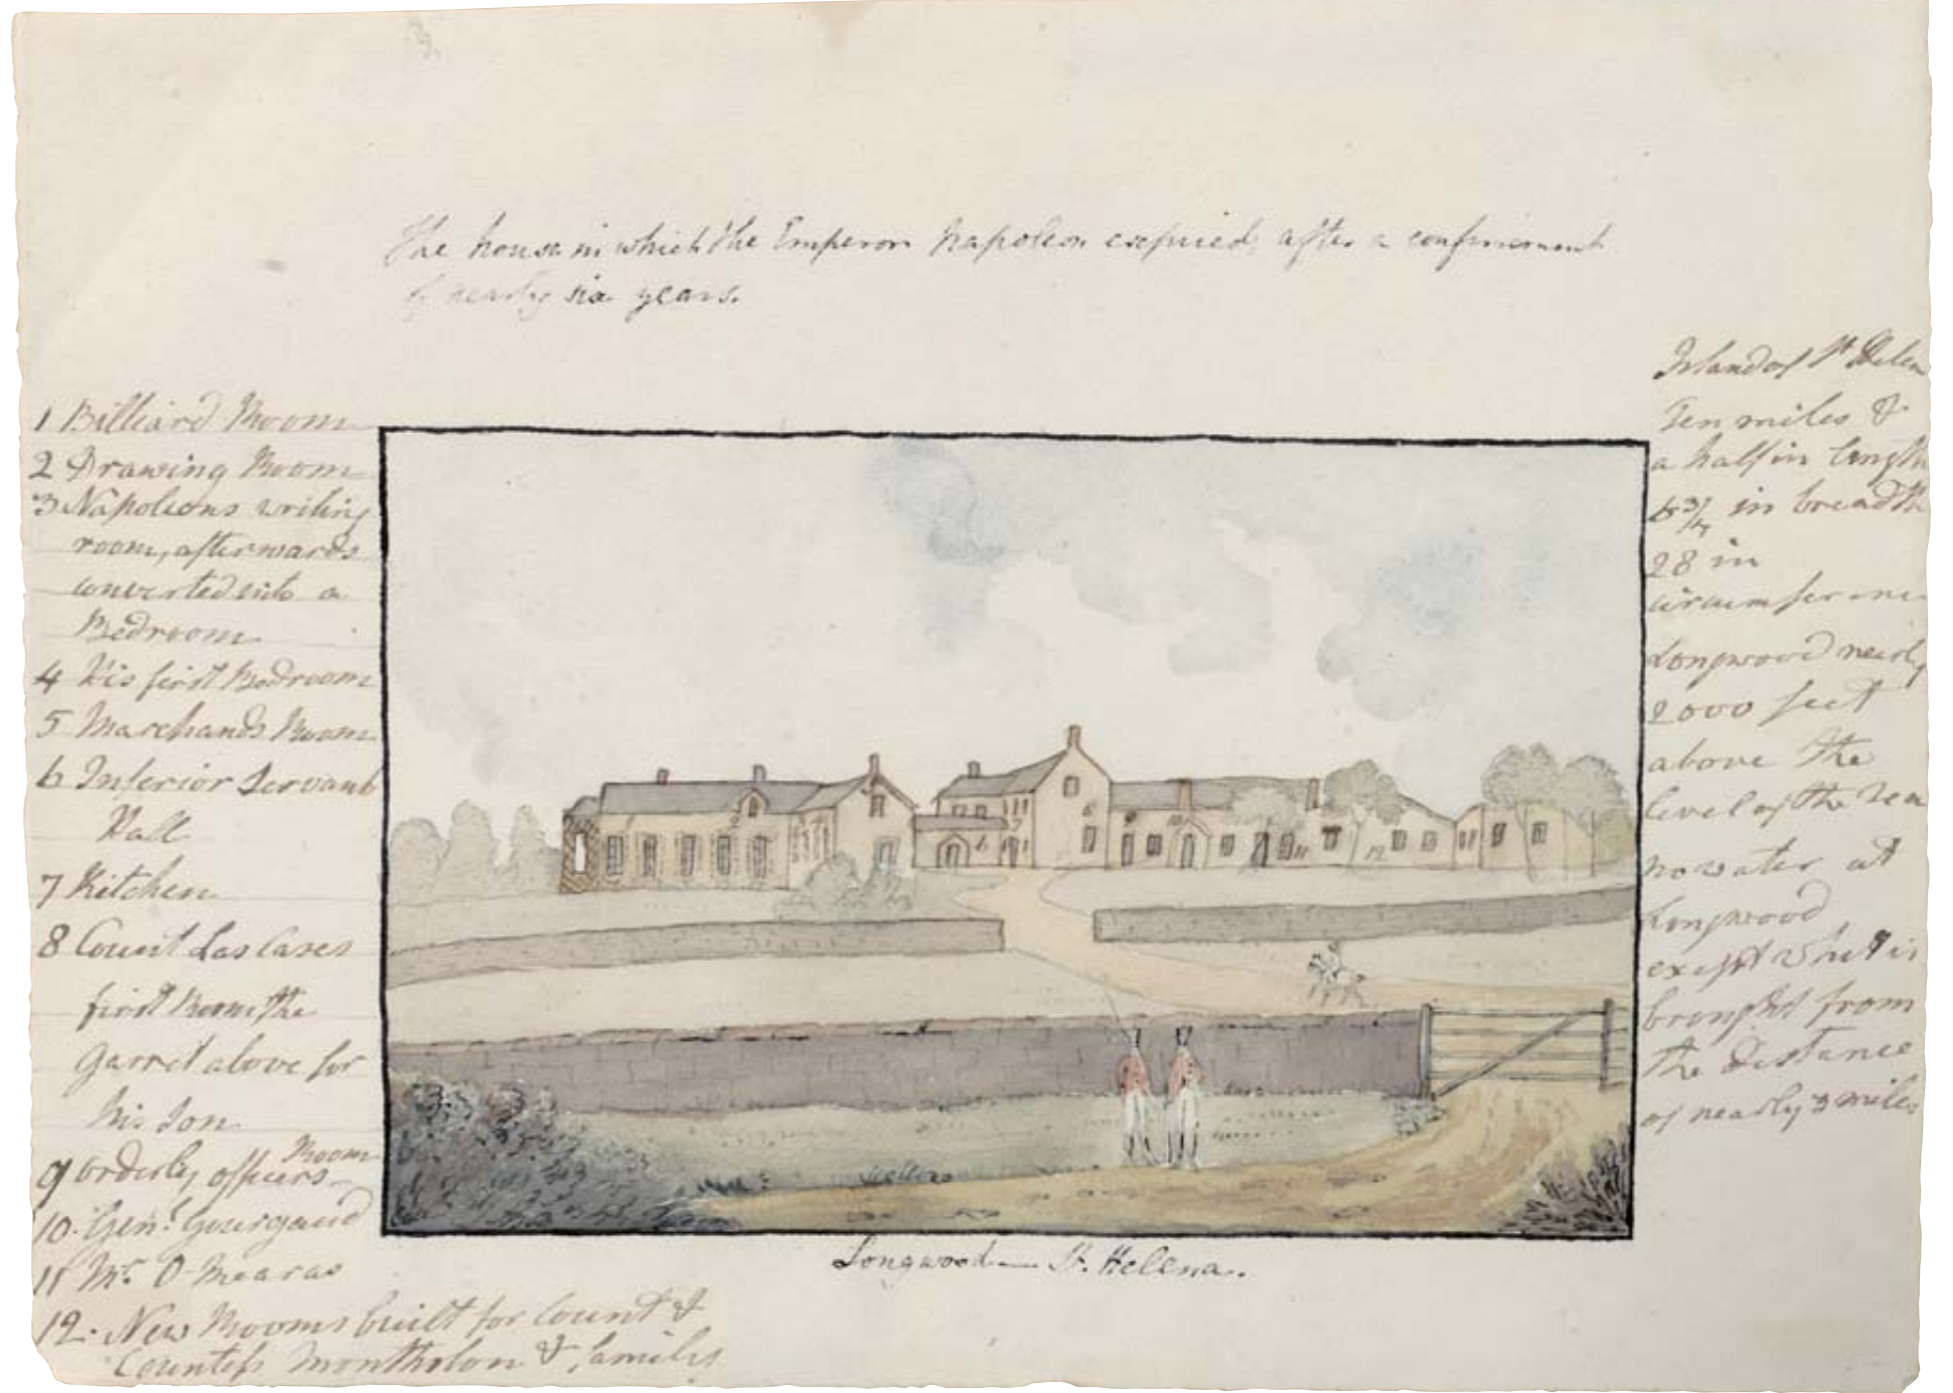 The house in which the Emperor Napoleon expired, after a confinement
of nearly six years.
1 Billiard Room
2 Drawing Room
3 Napoleons writing
room, afterwards
converted into a
Bedroom
4 His first Bedroom
5 Marchands Room
6 Inferior Servants
Hall
7 Kitchen
8 Count Las Cases
first Room, the
garret above for
his Son
Room
9 orderly officers
10. Genl. Gourgaud
11 Mr. O Mearas
12. New Rooms built for Count &
Countess Montholon & family
Island of St Helen
Ten miles &
a half in length
6 3/4 in breadth
28 in
circumferene
Longwood nearly
2000 feet
above the
level of the Sea
no water at
Longwood
except what is
brought from
the distance
of nearly 3 miles
Longwood — St. Helena.